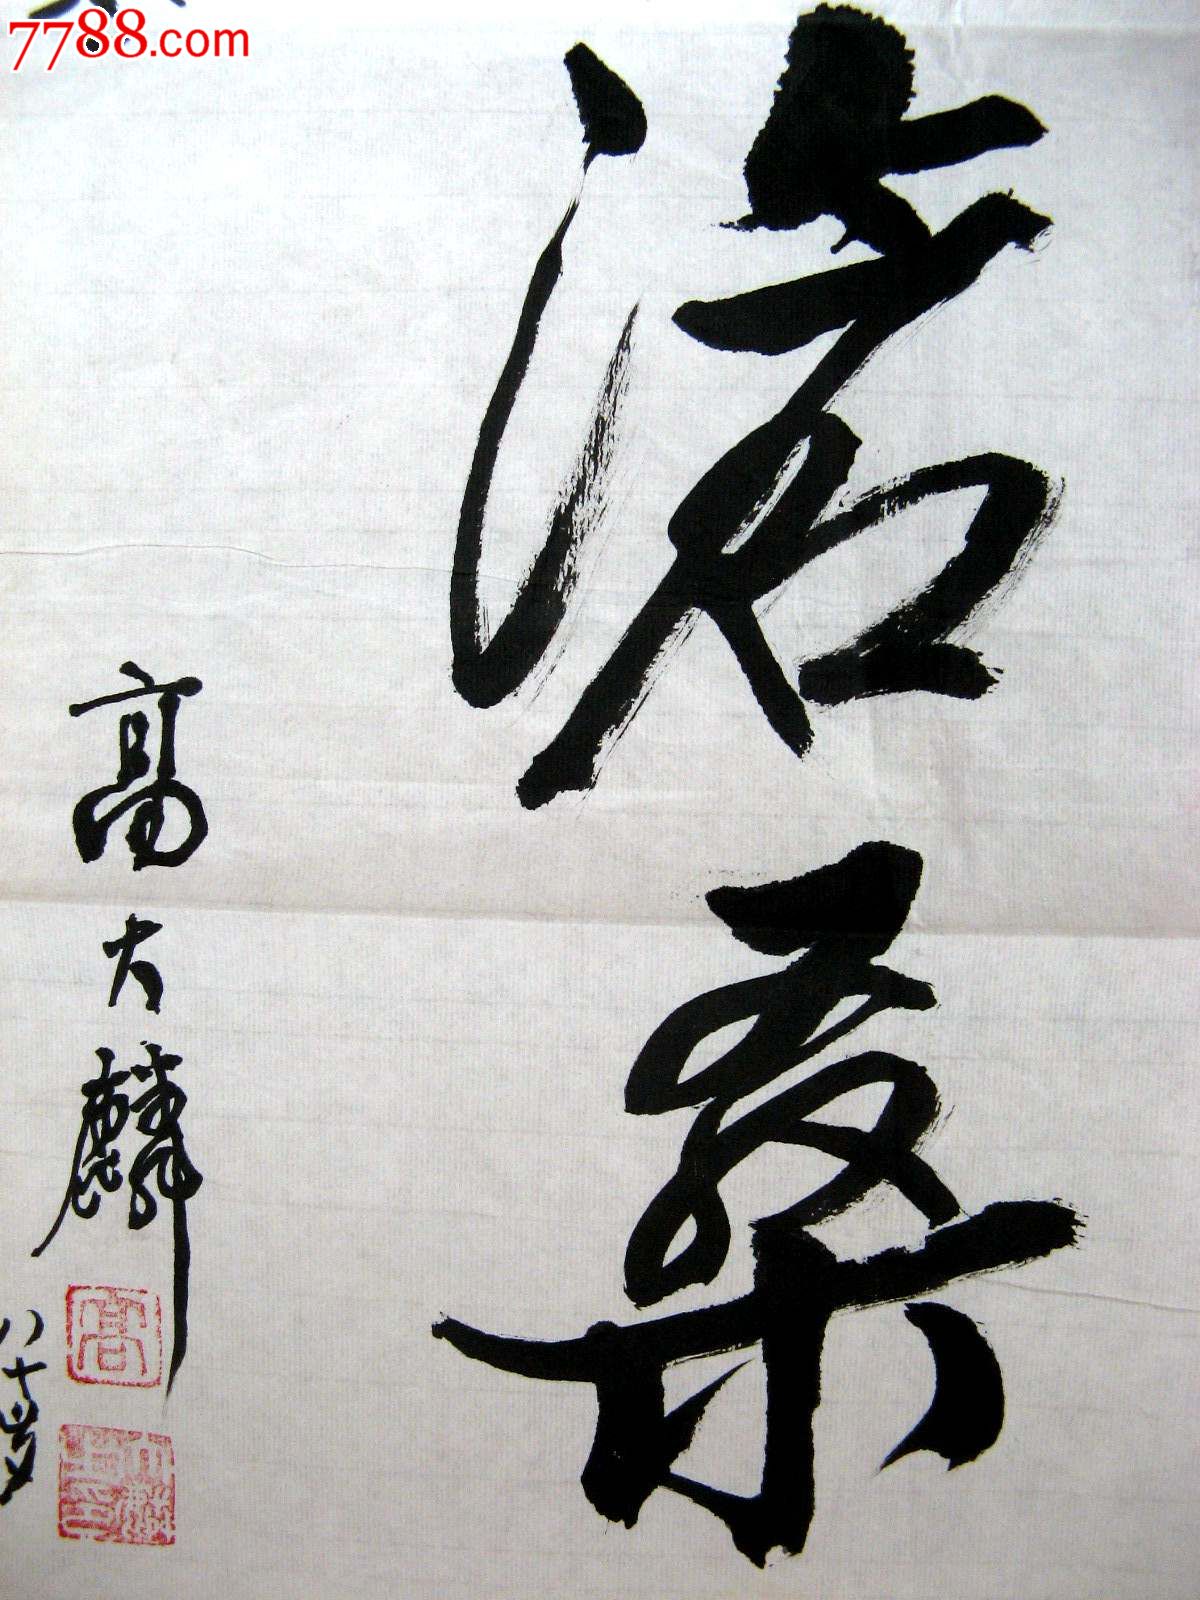 7788.com
沧桑
高大麟
八十岁
高